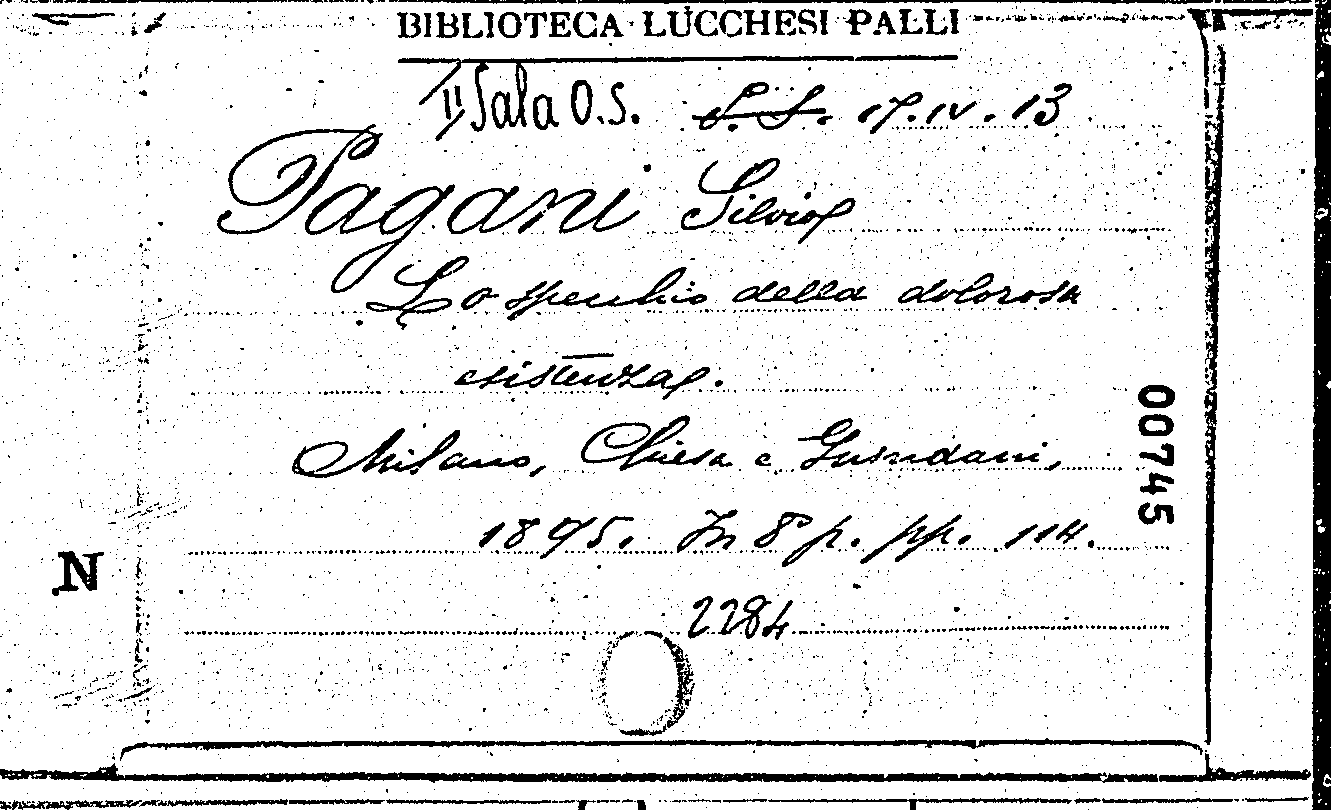 BIBLIOTECA LUCCHESI PALLI
II Sala O.S. S. S. 17.IV.13
Pagani Silvio
Lo specchio della dolorosa
esistenza.
Milano, Chiesa e Guindani,
1895. In 8° p. pp. 114.
2284
00745
N